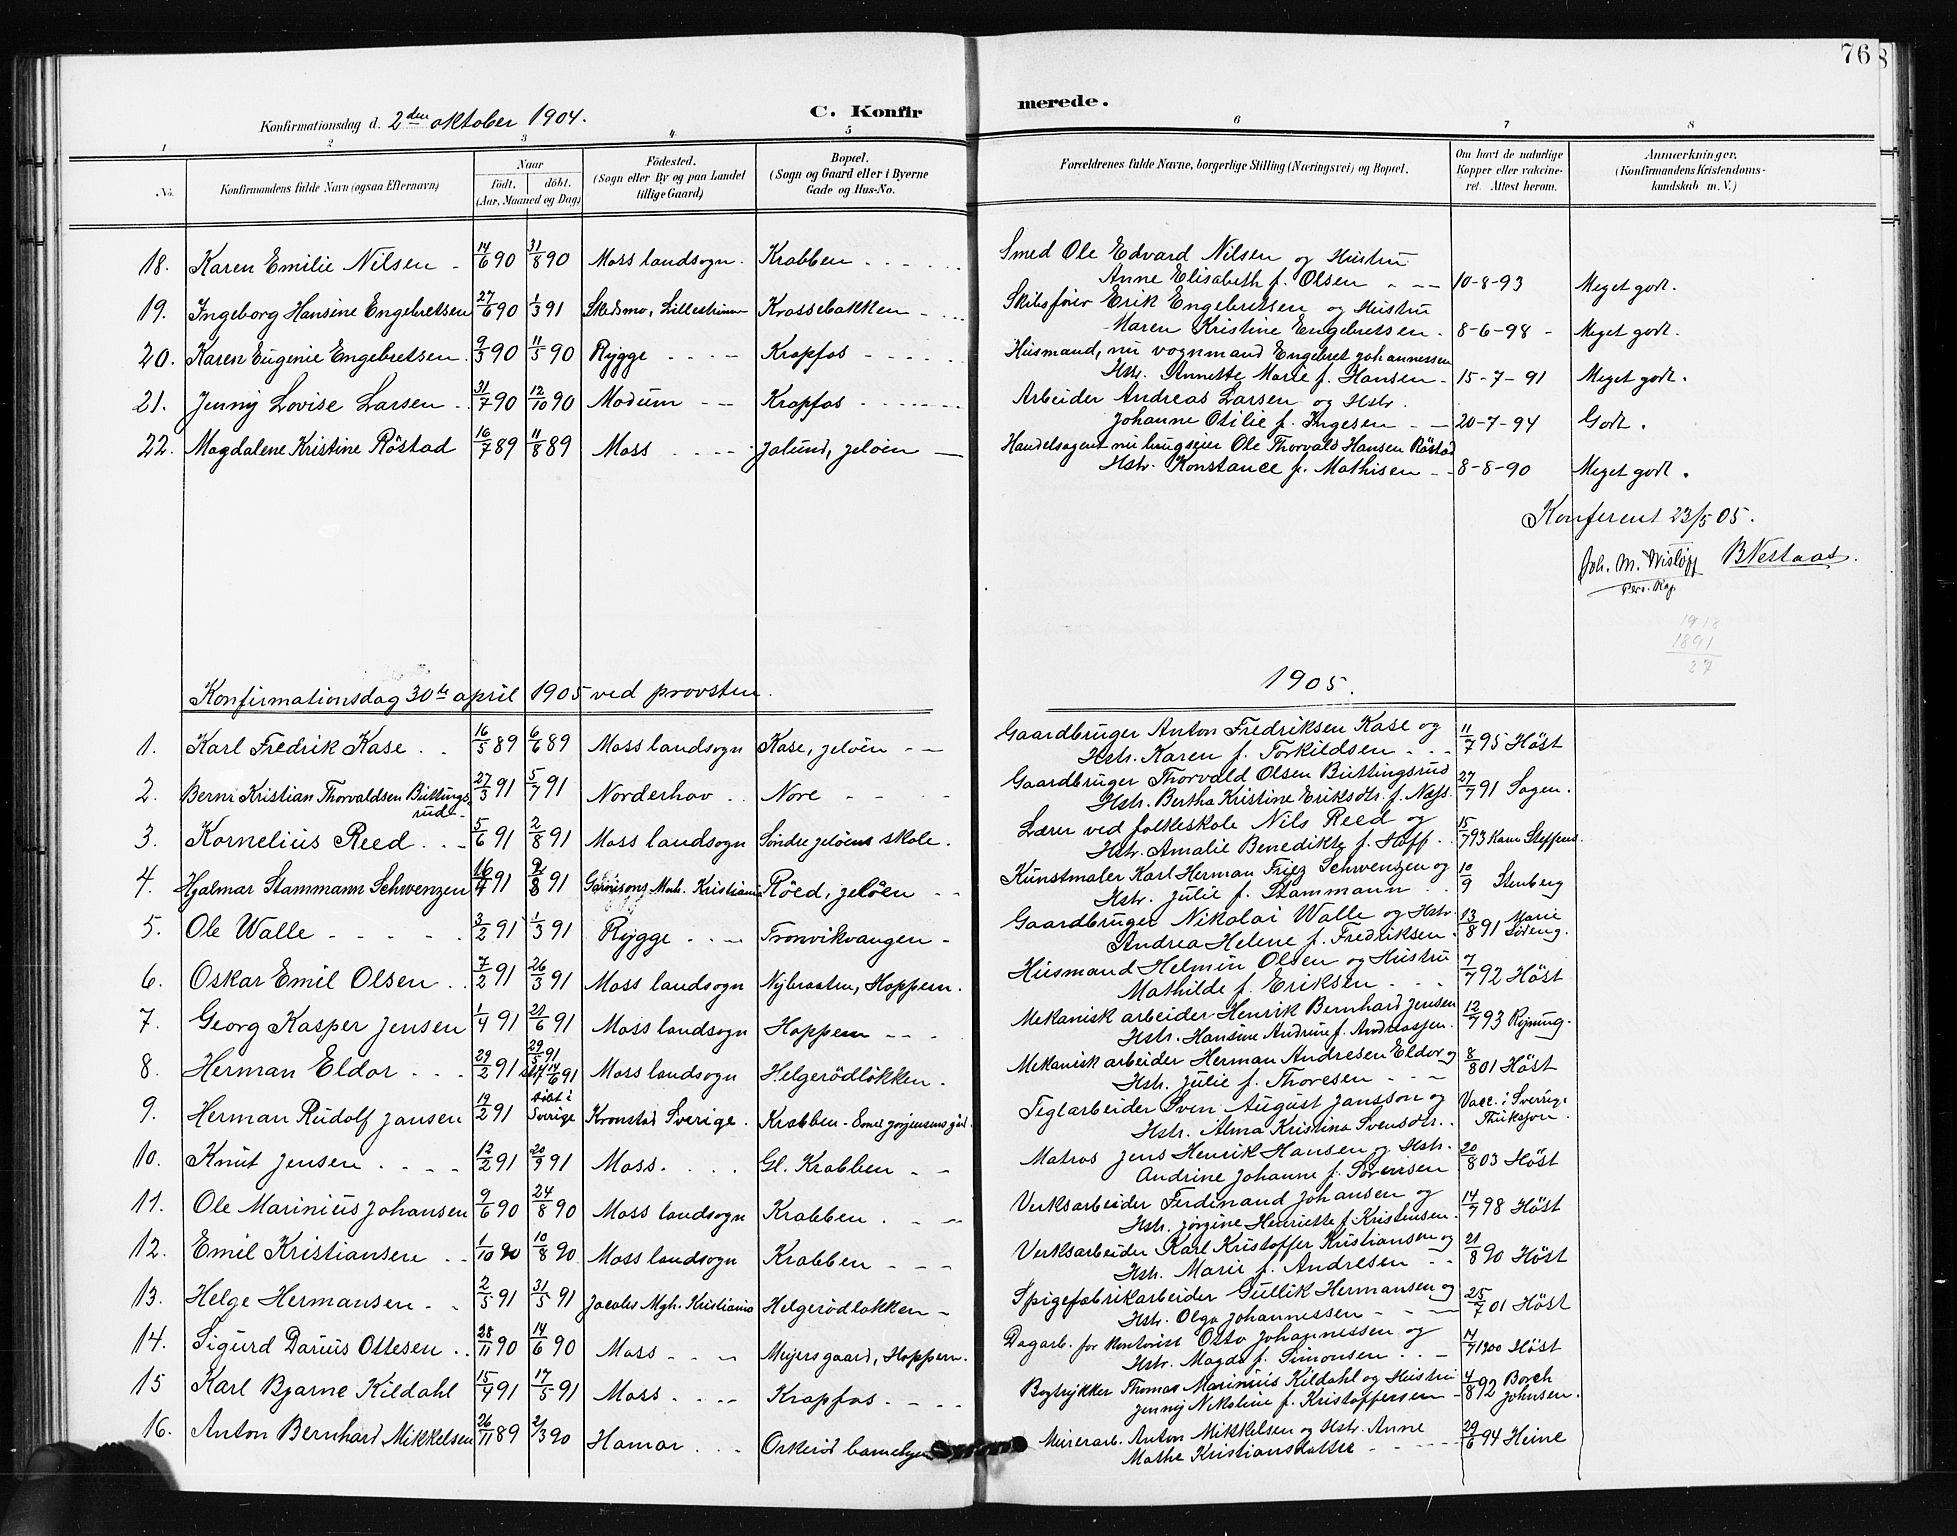 76
8
Konfirmationsdag d. 2den oktober 1904.
C. Konfirmerede.
1 2 3 4 5 6 7 8
No.
Konfirmandens fulde Navn (ogsaa Efternavn)
Naar
født. døbt.
(Aar, Maaned og Dag)
Fødested.
(Sogn eller By og paa Landet
tillige Gaard)
Bopæl.
(Sogn og Gaard eller i Byerne
Gade og Hus-No.
Forældrenes fulde Navne, borgerlige Stilling (Næringsvei) og Bopæl.
Om havt de naturlige
Kopper eller vakcine-
ret. Attest herom.
Anmærkninger,
(Konfirmandens Kristendoms-
kundskab m. V.)
18. Karen Emilie Nilsen 14/6 90 31/8 90 Moss landsogn. Krabben Smed Ole Edvard Nilsen og Hustru
Anne Elisabeth f. Olsen 10-8-93 Meget godt.
19. Ingeborg Hansine Engebretsen 27/6 90 1/3 91 Skedsmo, Lillestrøm Krossebakken Skibsfører Erik Engebretsen og Hustru
Maren Kristine Engebretsen. 8-6-98 Meget godt.
20. Karen Eugenie Engebretsen. 9/3 90 11/5 90 Rygge Krapfos Husmand, nu vognmand Engebret Johannessen
Hstr. Annette Marie f. Hansen 15-7-91 Meget godt.
21. Jenny Lovise Larsen 31/7 90 12/10 90 Modum Krapfos Arbeider Andreas Larsen og Hstr.
Johanne Otilie f. Ingesen 20-7-94 Godt.
22. Magdalene Kristine Röstad 16/7 89 11/8 89 Moss Jalund, Jelöen Handelsagent nu brugseier Ole Thorvald Hansen Röstad
Hstr. Konstance f. Mathisen 8-8-90 Meget godt.
Konferent 23/5 05.
Joh. M. Wisløff BNestaas.
Pers. Kap.
1918
1891
27
Konfirmationsdag 30te april 1905 ved provsten.
1905.
1. Karl Fredrik Kase 16/5 89 6/6 89 Moss landsogn Kase, Jelöen Gaardbruger Anton Fredriksen Kase og
Hstr. Karen f. Torkildsen 11/7 95 Höst
2. Bernt Kristian Thorvaldsen Buttings-
rud 27/3 91 5/7 91 Norderhov Nore Gaardbruger Thorvald Olsen Buttingsrud
Hstr. Bertha Kristine Eriksdtr. f. Næss 27/7 91 Sagen.
3. Kornelius Reed 5/6 91 2/8 91 Moss landsogn Söndre Jelöens skole. Lærer ved folkeskole Nils Reed og
Hstr. Amalie Benedikte f. Hoff 15/7 93 Kam Steffens
4. Hjalmar Stammann Schwenzen 16/4 91 9/8 91 Garnisons Mnh. Kristiania Röed, Jelöen Kunstmaler Karl Herman Friez Schwenzen og
Hstr. Julie f. Stammann 10/9 Stenberg
5. Ole Walle 3/2 91 1/3 91 Rygge Tronvikvangen Gaardbruger Nikolai Walle og Hstr.
Andrea Helene f. Fredriksen 13/8 91 Marie Söreng.
6. Oskar Emil Olsen 7/2 91 26/3 91 Moss landsogn Nybraaten, Hoppern. Husmand Helmin Olsen og Hustru
Mathilde f. Eriksen 7/7 92 Höst
7. Georg Kasper Jensen 1/4 91 21/6 91 Moss landsogn Hoppern Mekanisk arbeider Henrik Bernhard Jensen
Hstr. Hansine Andrine f. Andreassen. 12/7 93 Ryning.
8. Herman Eldor 29/2 91 29/5 91 14/6 91 Moss landsogn Helgerödlökken. Mekanisk arbeider Herman Andresen Eldor og
Hstr. Julie f. Thoresen 8/8 01 Höst
9. Herman Rudolf Jansen 19/2 91 döbt i
Sverige Kronstad Sverige. Krabben - Emil Jörgensens gård. Teglarbeider Sven August Jansson og
Hstr. Alma Kristina Svensdtr. Vacc. i Sverige
10. Knut Jensen 12/2 91 20/9 91 Moss. Gl. Krabben Matros Jens Henrik Hansen og Hstr.
Andrine Johanne f. Sörensen 20/8 03 Höst
11. Ole Marinius Johansen 9/6 90 24/8 90 Moss landsogn Krabben Verksarbeider Ferdinand Johansen og
Hstr. Jörgine Henriette f. Kristensen. 14/7 98 Höst
12. Emil Kristiansen 1/10 90 10/8 90 Moss landsogn Krabben Verksarbeider Karl Kristoffer Kristiansen og
Hstr. Marie f. Andresen 21/8 90 Höst
13. Helge Hermansen 2/5 91 31/5 91 Jacobs Mgh. Kristiania Helgerödlökken Spigefabrikarbeider Gullik Hermansen og
Hstr. Olga Johannessen 25/7 01 Höst
14. Sigurd Darius Ottesen 28/11 90 14/6 90 Moss Meyersgaard, Hoppern. Dagarb. for kontorist Otto Johannessen og
Hstr. Magda f. Simonsen 4/7 1900 Höst
15 Karl Bjarne Kildahl 15/4 91 17/5 91 Moss Krapfos Bogtrykker Thomas Marinius Kildahl og Hustru
Jenny Nikoline f. Kristoffersen 4/8 92 Borch Johnsen.
16. Anton Bernhard Mikkelsen 26/11 89 2/3 90 Hamar Orkeröd barnehjem Murerarb. Anton Mikkelsen og Hstr. Anne
Mathe Kristiansdatter 29/6 94 Heine